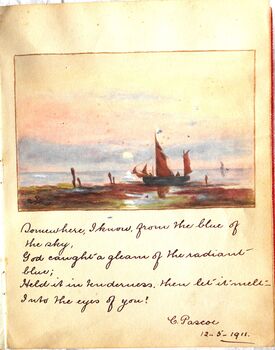 Somewhere, I know, from the blue of
the sky,
God caught a gleam of the radiant
blue;
Held it in tenderness, then let it melt—
Into the eyes of you!
C. Pascoe
12-5-1911.